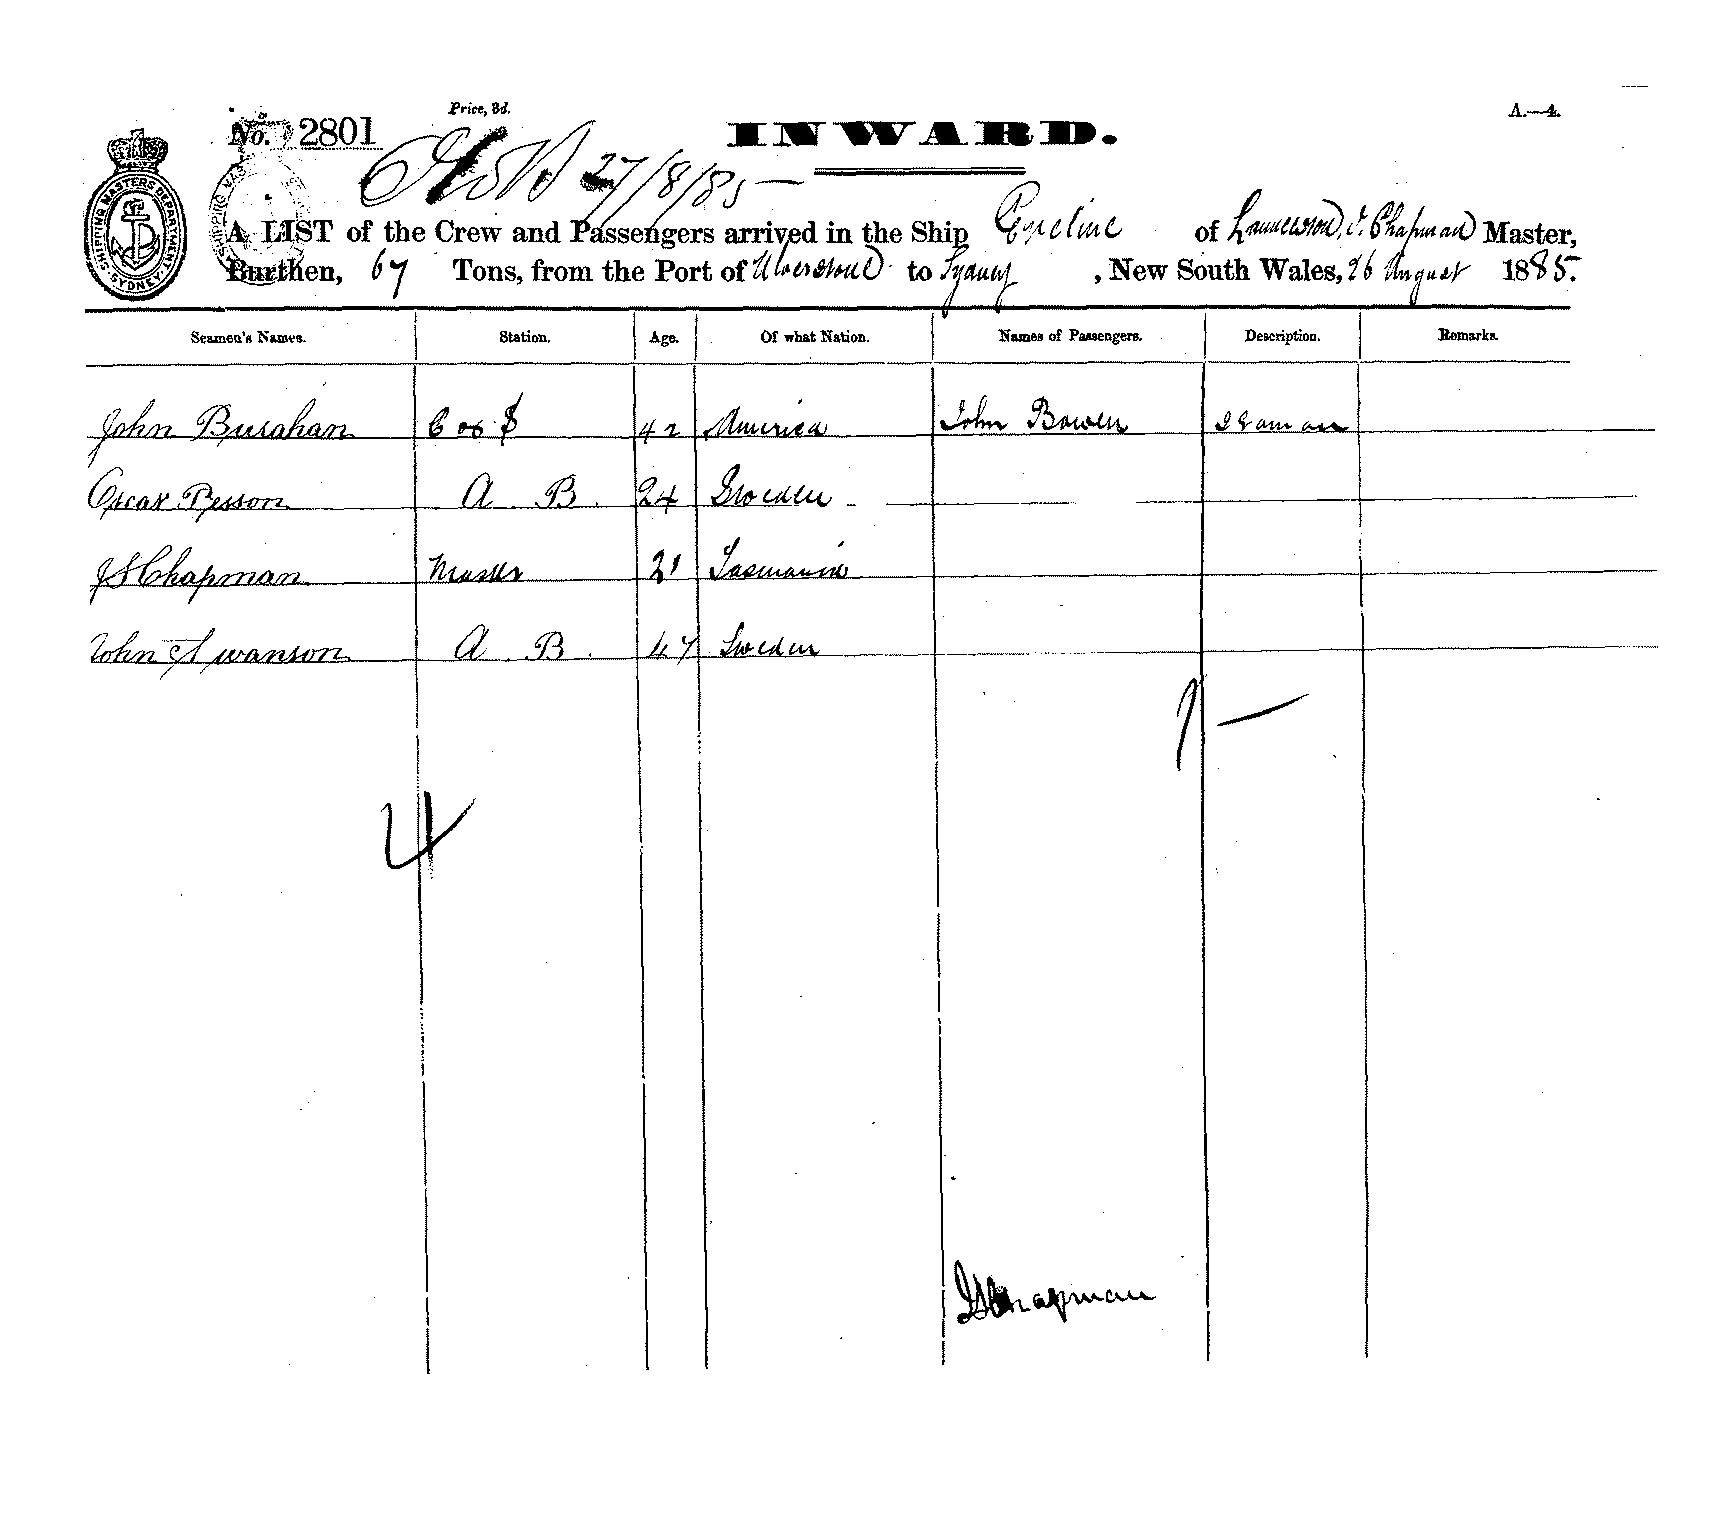 Price, 3d.
A.—4.
No. 2801
INWARD.
27/8/85
SHIPPING MASTERS DEPARTMENT. SYDNEY
A LIST of the Crew and Passengers arrived in the Ship of Launceston, J. Chapman Master,
Burthen, 67 Tons, from the Port of Ulverstone to Sydney, New South Wales, 26 August 1885.
Seamen's Names. Station. Age. Of what Nation. Names of Passengers. Description. Remarks.
John 42 America John Bowen
Oscar A B. 24 Sweden
J S Chapman Master 21 Tasmania
John Swanson A B. 47 Sweden
1
4
J S Chapman